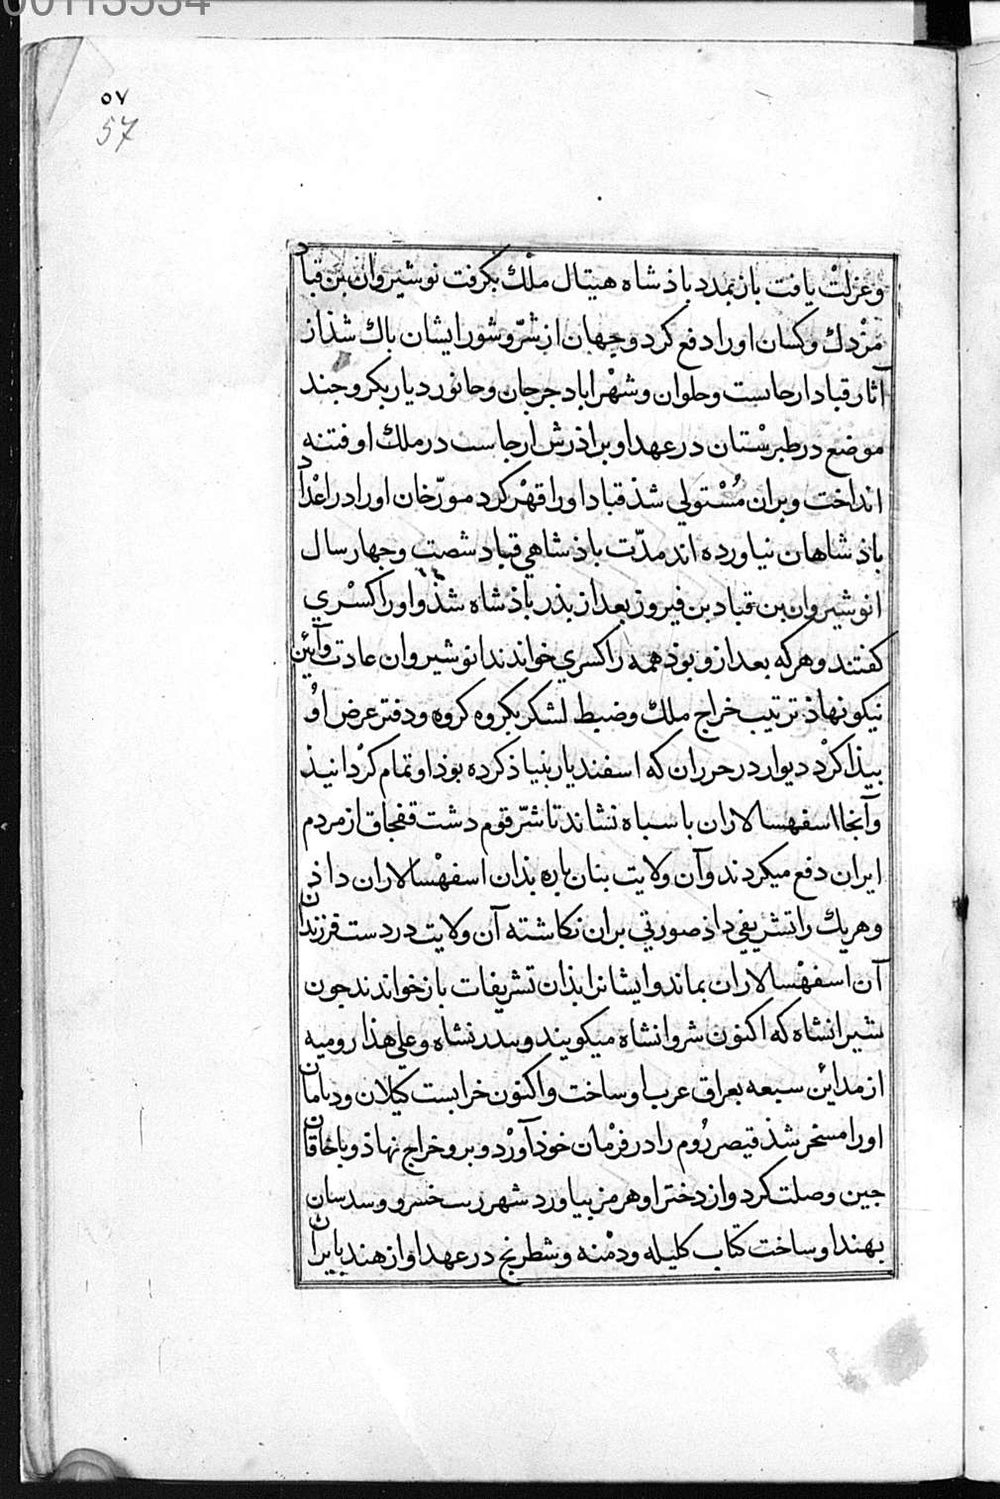 00113534
٥٧
57
وعزلت يافت باز بمدد باذشاه هيتال ملك بكرفت نوشيروان بن قباد
مزدك وكسان اورا دفع كرد وجهان از شرّ و شور ايشان باك شذ از
آثار قباد ارجاست وحلوان وشهراباد جرجان وحانور ديار بكر وجند
موضع در طبرستان در عهد او براذرش ارجاست در ملك او فتنه
انداخت وبران مُسْتولي شذ قباد اورا قهر كرد مورّخان اورا در اعداد
باذشاهان نياورده اند مدّت باذشاهي قباد شصت وجهار سال
انوشيروان بن قباد بن فيروز بعد از بذر باذشاه شذ واورا كسْري
كفتند وهركه بعد ازو بوذ همه را كسري خواندند انوشيروان عادت وآيين
نيكو نهاذ ترتيب خراج ملك وضبط لشكر بكروه كروه ودفتر عرض اوُ
بيذا كرْد ديوار در حرران كه اسفنديار بنياذ كرده بوذ او تمام كرْدانيذ
وآنجا اسفهسالاران با سباه نشاند تا شرّ قوم دشت قفجاق از مردم
ايران دفع ميكردند وآن ولايت بنان باره بذان اسفهْسالاران داذ
وهريك را تشريفي داذ صورتي بران نكاشته آن ولايت در دست فرزندان
آن اسفهْسالاران بماند وايشانرا بذان تشريفات باز خواندند جون
شيرانشاه كه اكنون شروانشاه ميكويند وسدرنشاه وعلي هذا روميه
از مداين سبعه بعراق عرب او ساخت واكنون خرابست كيلان وديلمان
اورا مسخر شذ قيصر رُوم را در فرْمان خوذ آورْد وبرو خراج نهاذ وبا خاقان
جين وصلت كرد واز دختر او هرمز بياورد شهر زسخسرو وسدسان
بهند او ساخت كتاب كليله ودمْنه وشطرنج در عهد او از هند بايران